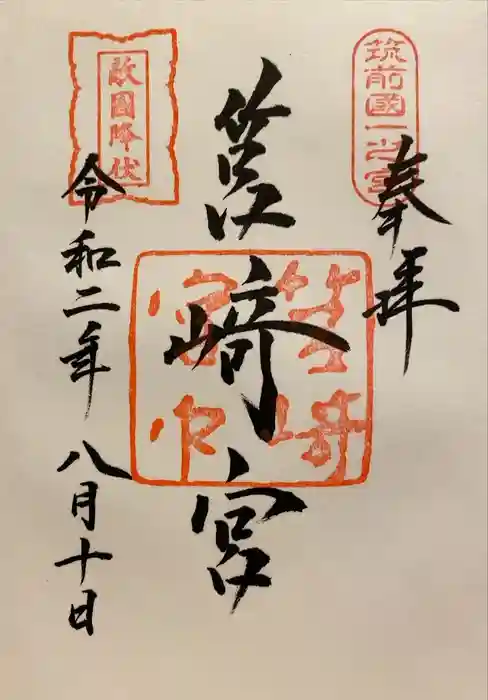 筑前國一之宮
奉拝
筥崎宮
筥崎宮印
敵國降伏
令和二年八月十日